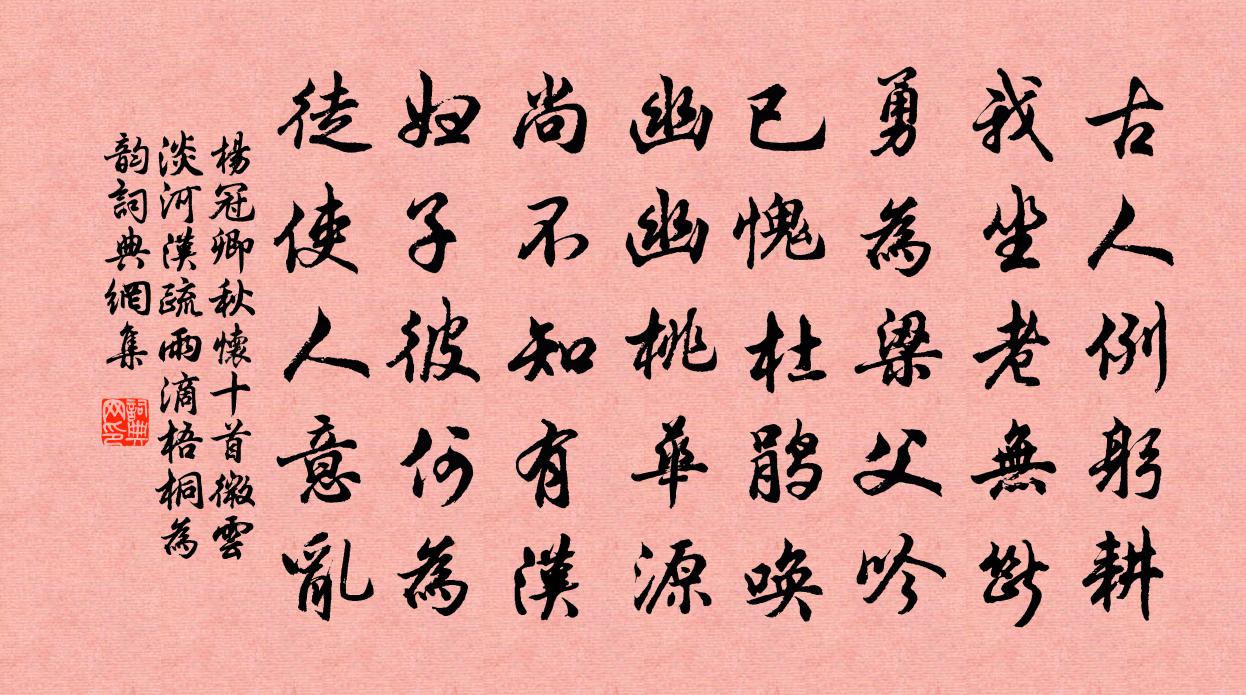 古人例躬耕
我坐老無斷
勇為梁父吟
已愧杜鵑喚
幽幽桃華源
尚不知有漢
婦子彼何為
徒使人意亂
楊冠卿秋懷十首微雲
淡河漢疏雨滴梧桐為
韵詞典網集
詞典
网印